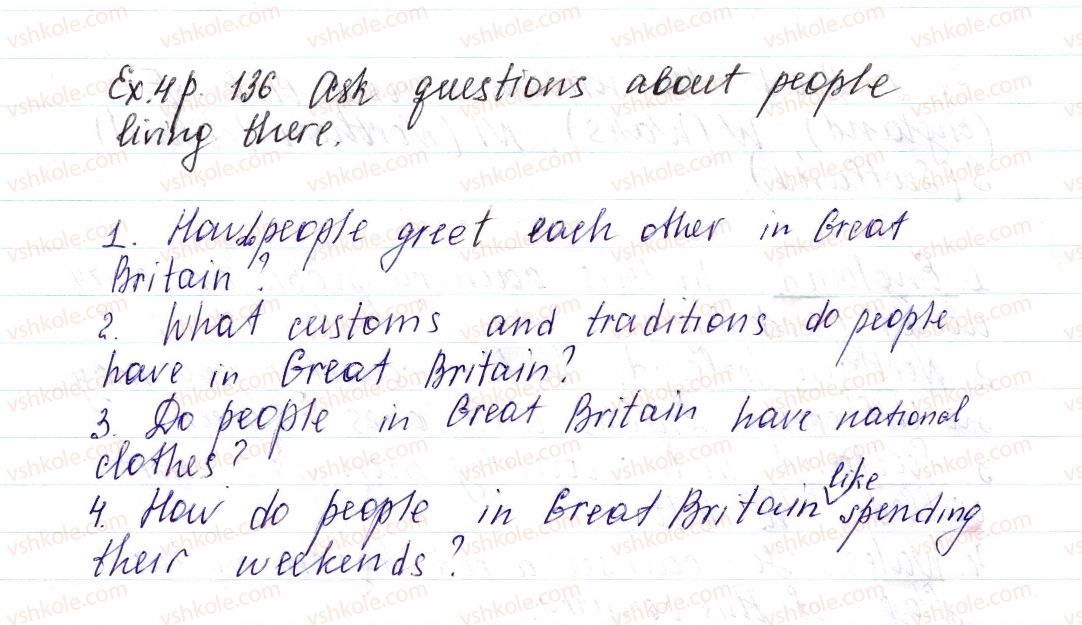 Ex.4 p. 136 Ask questions about people
living there.
1. How do people greet each other in Great
Britain?
2. What customs and traditions do people
have in Great Britain?
3. Do people in Great Britain have national
clothes?
4. How do people in Great Britain like spending
their weekends?
vshkole.com